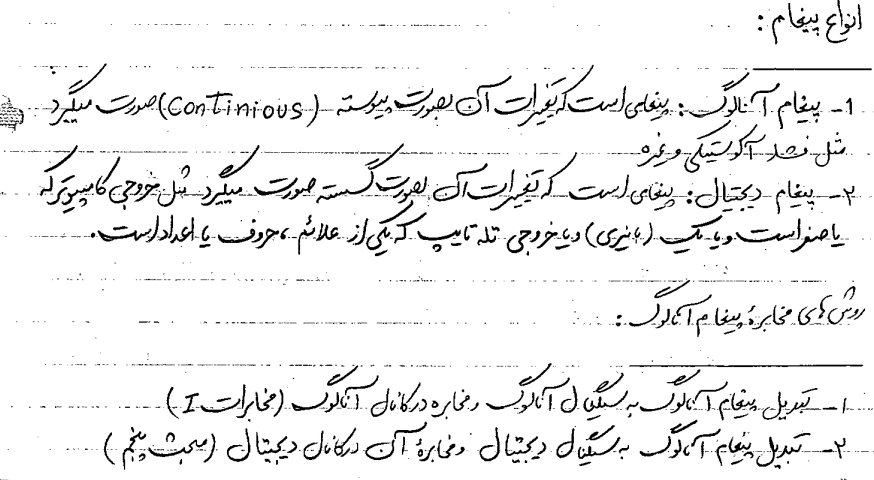 انواع پیغام :
1- پیغام آنالوگ : پیغامی است که تغیرات آن بصورت پیوسته (Continious) صورت میگیرد
مثل فشار آکوستیکی و غیره
۲- پیغام دیجتیال : پیغامی است که تغیرات آن بصورت گسسته صورت میگیرد مثل خروجی کامپیوتر که
یا صفر است و یا یک (باینری) و یا خروجی تله تایپ که یکی از علائم ، حروف یا اعداد است .
روش های مخابرهٔ پیغام آنالوگ :
۱- تبدیل پیغام آنالوگ به سیگنال آنالوگ و مخابره در کانال آنالوگ (مخابرات I)
۲- تبدیل پیغام آنالوگ به سیگنال دیجیتال و مخابرهٔ آن در کانال دیجیتال (مبحث پنجم)